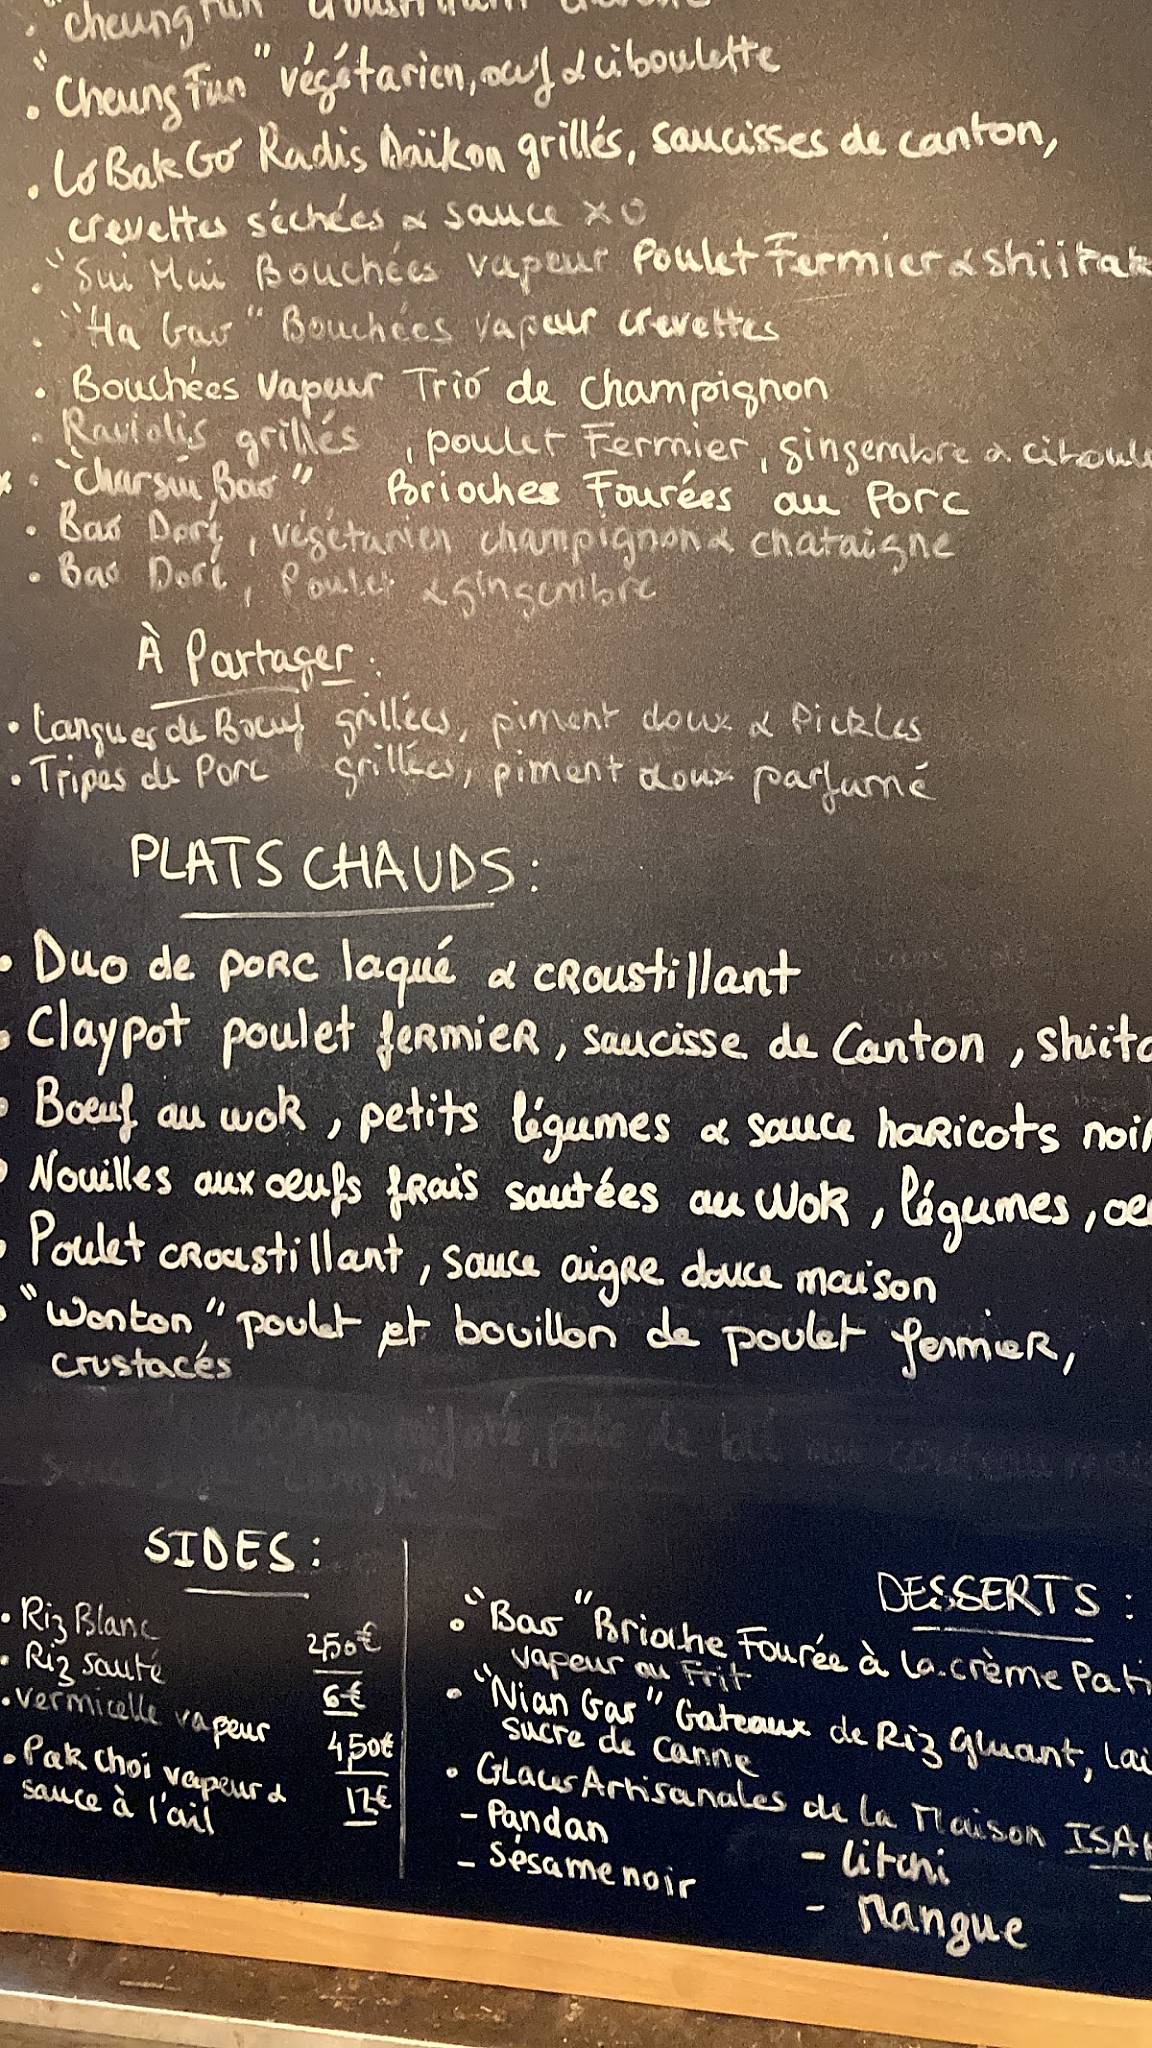 "cheung Fun
"Cheung Fun" végétarien, oeuf & ciboulette
. Lo Bak Go Radis Daïkon grillés, saucisses de canton,
crevettes séchées & sauce XO
. "Sui Mai Bouchées vapeur Poulet Fermier & shiitak
. "Ha Gao" Bouchées vapeur crevettes
. Bouchées Vapeur Trio de champignon
. Raviolis grillés, poulet Fermier, gingembre & ciboule
. "Charsiu Bao" Brioches Fourées au Porc
. Bao Doré, végétarien champignon & chataigne
. Bao Doré, Poulet & gingembre
À Partager :
. Langues de Boeuf grillées, piment doux & Pickles
. Tripes de Porc grillées, piment doux parfumé
PLATS CHAUDS :
. Duo de PORC laqué & CROustillant
. Claypot poulet feRMieR, saucisse de Canton, shiita
. Boeuf au woK, petits légumes & sauce haRicots noir
. Nouilles aux oeufs fRais sautées au WoK, légumes, oe
. Poulet CROustillant, sauce aigRe douce maison
. "Wonton" poulet et bouillon de poulet feRmieR,
crustacés
SIDES :
. Riz Blanc 2,50€
. Riz sauté 6€
. vermicelle vapeur 4,50€
. Pak choi vapeur & 12€
sauce à l'ail
DESSERTS :
. "Bao" Brioche Fourée à la crème Pati
vapeur ou Frit
. "Nian Gao" Gateaux de Riz gluant, lai
sucre de canne
. Glaces Artisanales de la Maison ISA
- Pandan - Litchi -
- Sésame noir - Mangue